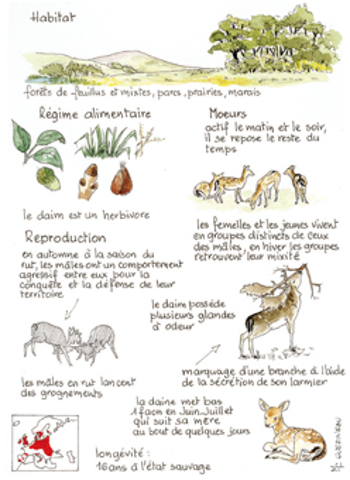 Habitat
forêts de feuillus et mixtes, parcs, prairies, marais
Régime alimentaire
le daim est un herbivore
Moeurs
actif le matin et le soir,
il se repose le reste du
temps
les femelles et les jeunes vivent
en groupes distincts de ceux
des mâles, en hiver les groupes
retrouvent leur mixité
Reproduction
en automne à la saison du
rut, les mâles ont un comportement
agressif entre eux pour la
conquête et la défense de leur
territoire
le daim possède
plusieurs glandes
à odeur
marquage d'une branche à l'aide
de la sécrétion de son larmier
les mâles en rut lancent
des grognements
la daine met bas
1 faon en Juin-Juillet
qui suit sa mère
au bout de quelques jours
longévité:
16 ans à l'état sauvage